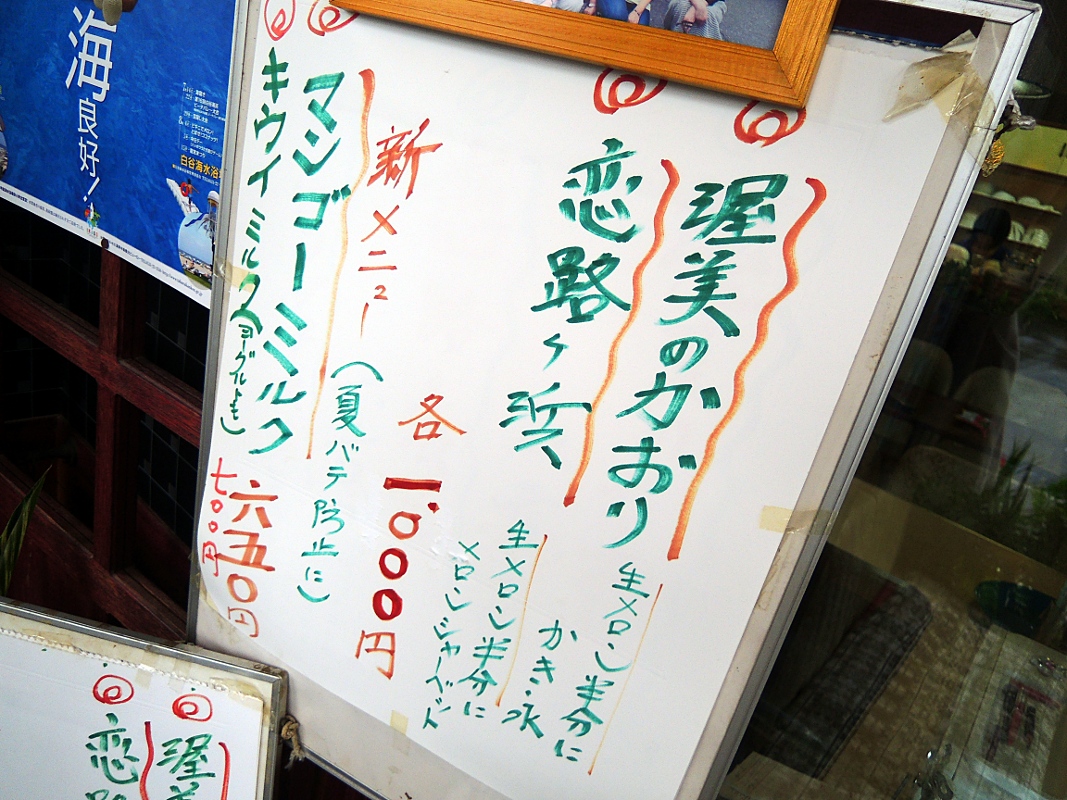 渥美のかおり
生メロン半分に
かき氷
恋路ヶ浜
生メロン半分に
メロンシャーベット
各一.〇〇〇円
新メニュー
(夏バテ防止に)
マンゴーミルク
六五〇円
キウイミルク(ヨーグルトも)
七〇〇円
海良好!
白谷海水浴
渥美
恋路